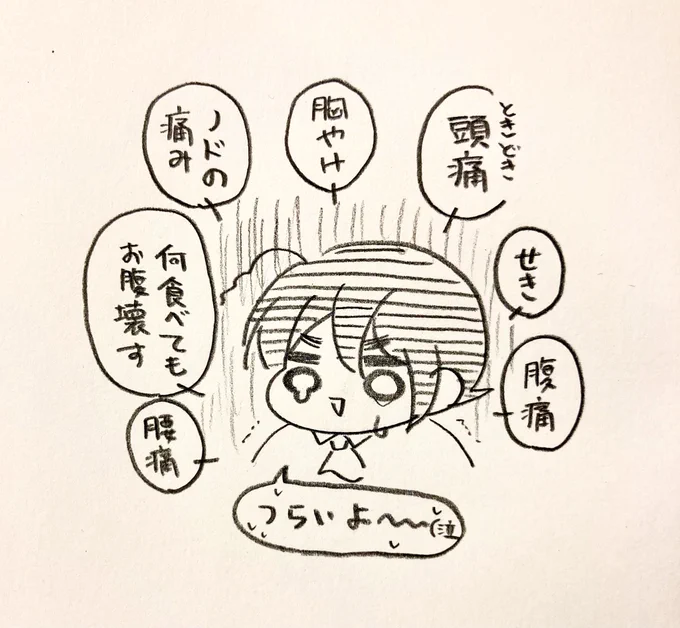 ときどき
頭痛
胸やけ
ノドの
痛み
せき
何食べても
お腹壊す
腹痛
腰痛
つらいよ〜〜(泣